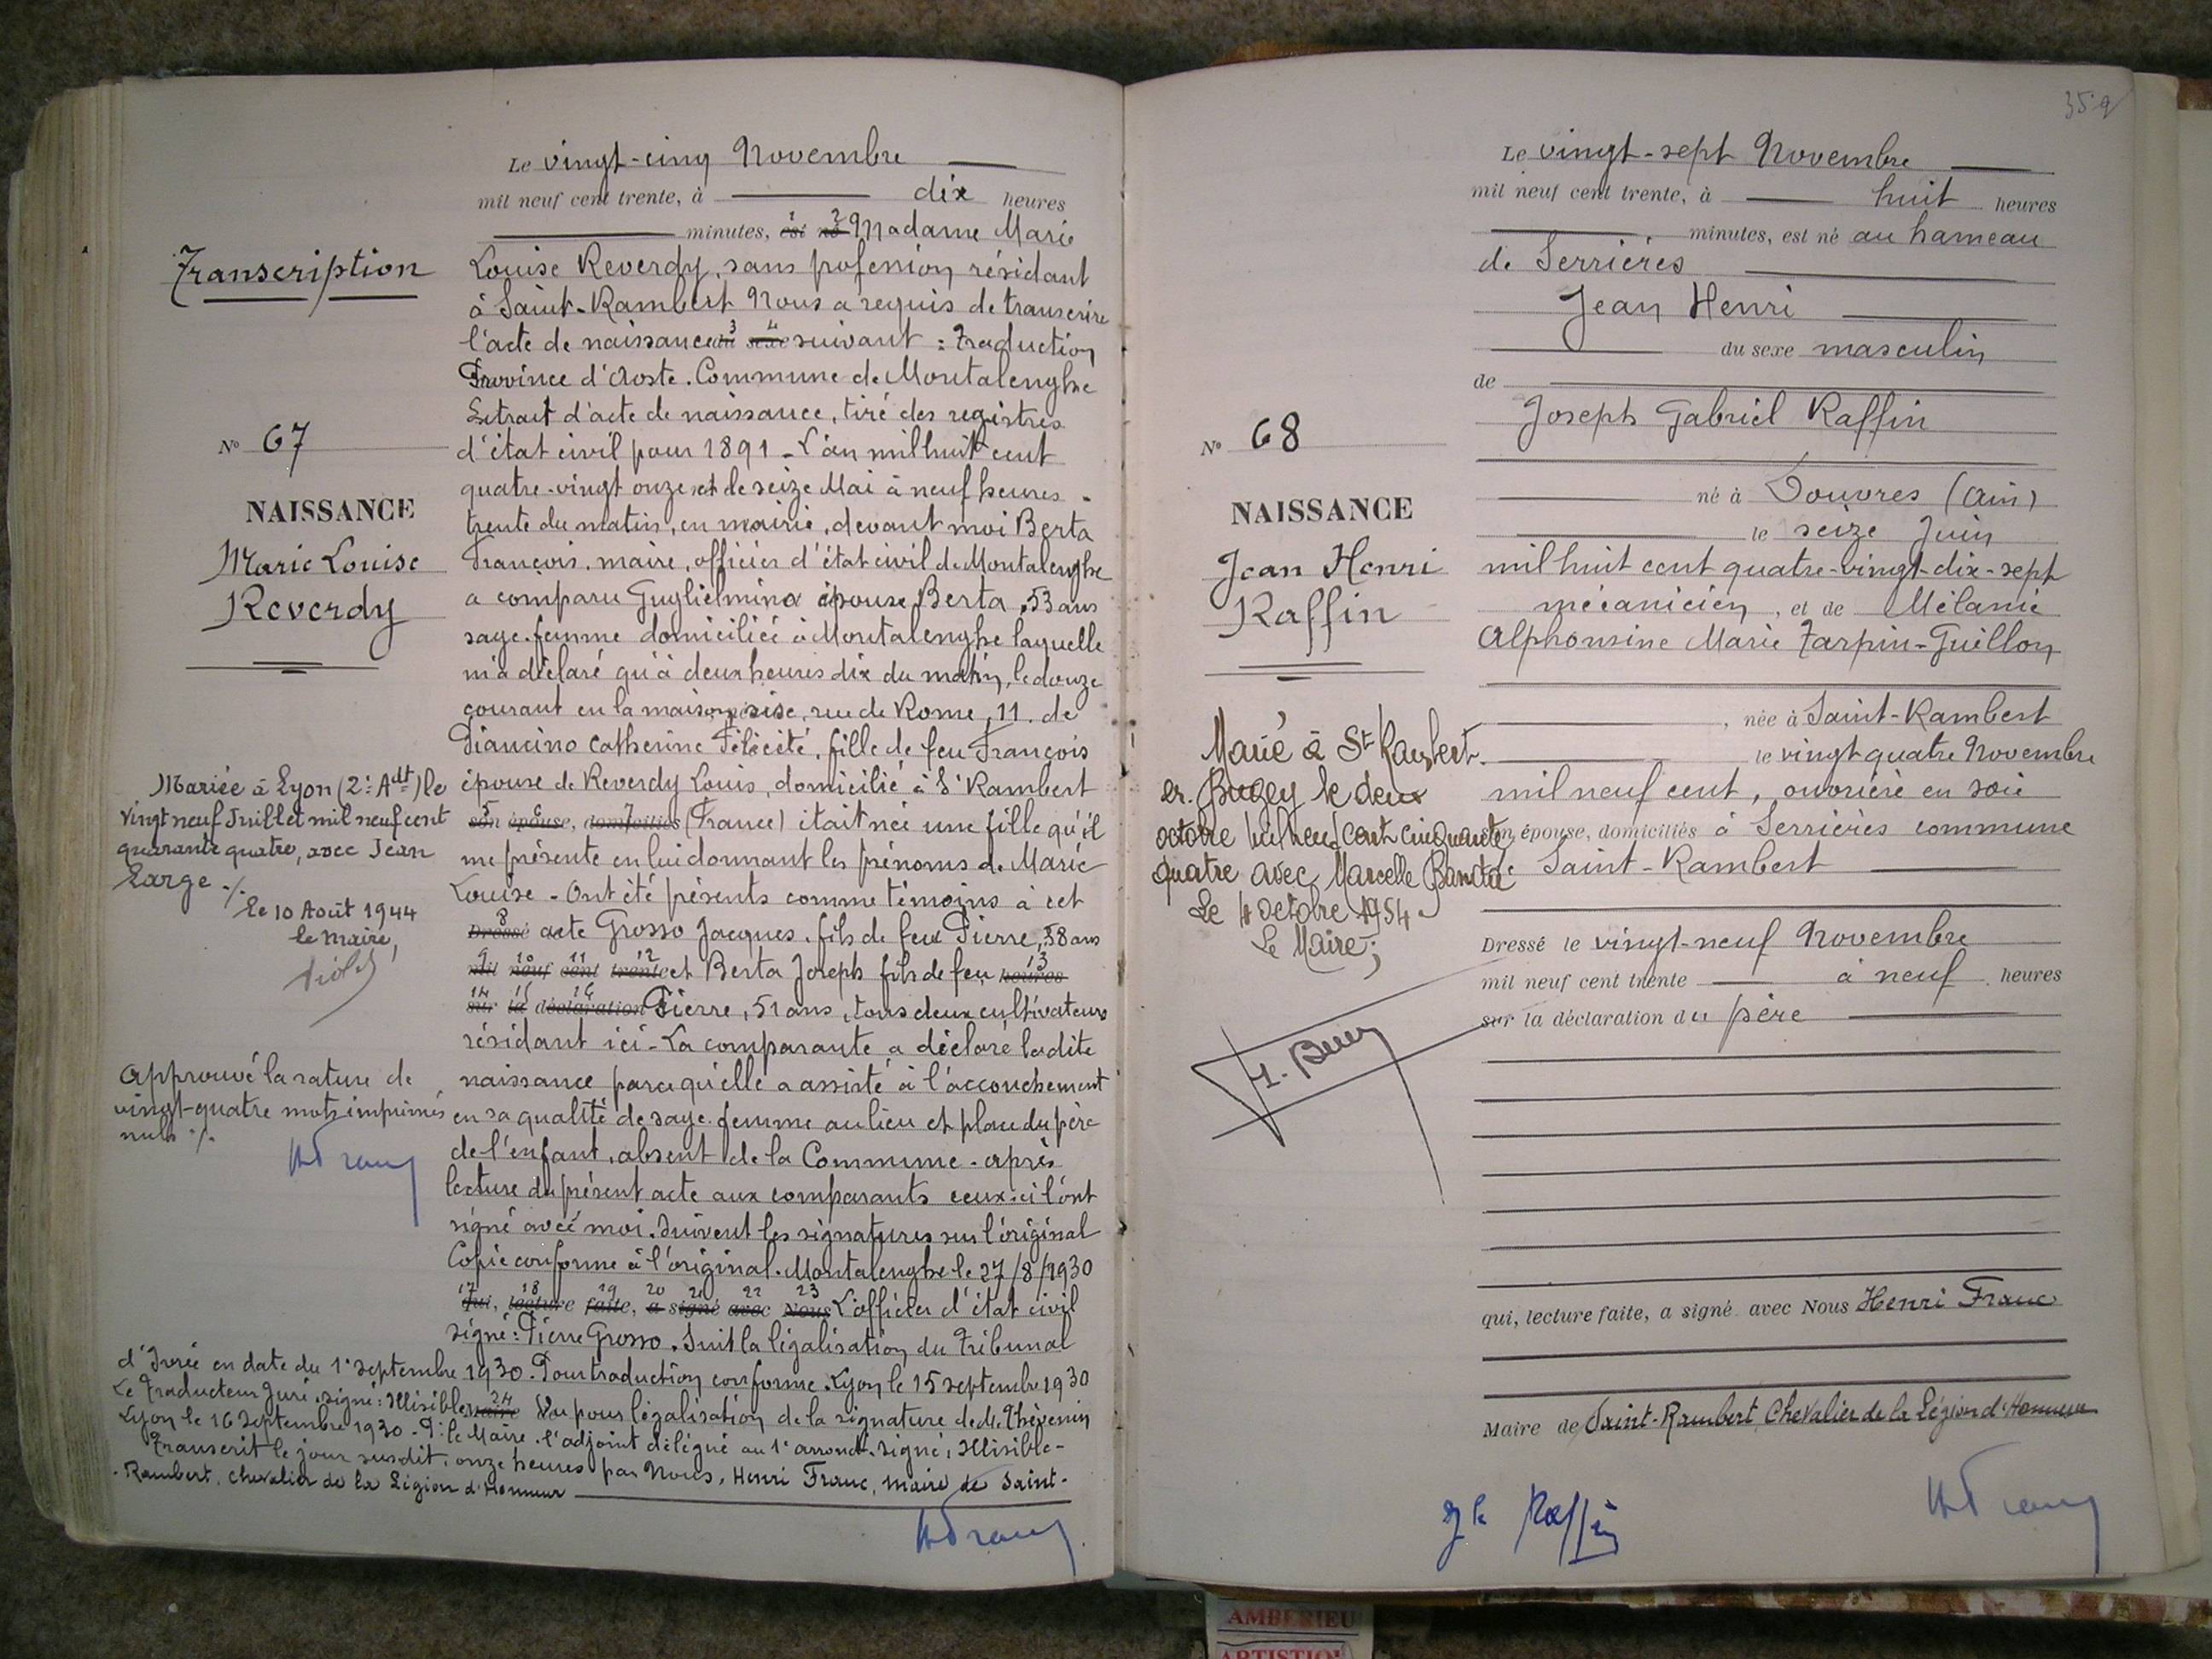 Le vingt-cinq Novembre
mil neuf cent trente, à dix heures
minutes, est né Madame Marie
1 2
Transcription
Louise Reverdy, sans profession résidant
à Saint-Rambert Nous a requis de transcrire
l'acte de naissance du sexe suivant : Traduction
3 4
Province d'Aoste. Commune de Montalenghe
Extrait d'acte de naissance, tiré des registres
d'état civil pour 1891 - L'an mil huit cent
quatre-vingt onze et le seize Mai à neuf heures
trente du matin, en mairie, devant moi Berta
François, maire, officier d'état civil de Montalenghe
a comparu Guglielmina épouse Berta, 53 ans
sage-femme domiciliée à Montalenghe laquelle
m'a déclaré qu'à deux heures dix du matin, le douze
courant en la maison sise, rue de Rome, 11. de
Diancino Catherine Félicité, fille de feu François
épouse de Reverdy Louis, domicilié à St Rambert
son épouse, domiciliés (France) était née une fille qu'il
5 6 7
me présente en lui donnant les prénoms de Marie
Louise - Ont été présents comme témoins à cet
Dressé acte Grosso Jacques, fils de feu Pierre, 38 ans
8
mil neuf cent trente et Berta Joseph fils de feu heures
9 10 11 12 13
sur la déclaration Pierre, 51 ans, tous deux cultivateurs
14 15 16
résidant ici - La comparante a déclaré ladite
naissance parce qu'elle a assisté à l'accouchement
en sa qualité de sage-femme au lieu et place du père
de l'enfant, absent de la Commune - après
lecture du présent acte aux comparants ceux-ci l'ont
signé avec moi. Suivent les signatures sur l'original
Copie conforme à l'original. Montalenghe le 27/8/1930
qui, lecture faite, a signé avec Nous L'officier d'état civil
17 18 19 20 21 22 23
signé : Pierre Grosso. Suit la légalisation du Tribunal
d'Ivrée en date du 1er Septembre 1930. Pour traduction conforme. Lyon le 15 septembre 1930
Le Traducteur Juré. signé : Illisible Maire Vu pour légalisation de la signature de M. Thévenin
24
Lyon le 16 Septembre 1930 - P. le Maire. l'adjoint délégué au 1er arrondt. signé, Illisible -
Transcrit le jour susdit, onze heures par Nous, Henri Franc, maire de Saint-
-Rambert, Chevalier de la Légion d'Honneur
N° 67
NAISSANCE
Marie Louise
Reverdy
Mariée à Lyon (2e Adt) le
vingt neuf Juillet mil neuf cent
quarante quatre, avec Jean
Large ./.
Le 10 Août 1944
le Maire,
Approuvé la rature de
vingt-quatre mots imprimés
nuls ./.
HFranc
HFranc
359
Le vingt-sept Novembre
mil neuf cent trente, à huit heures
minutes, est né au hameau
de Serrières
Jean Henri
du sexe masculin
de
Joseph Gabriel Raffin
né à Douvres (Ain)
le seize Juin
mil huit cent quatre-vingt-dix-sept
mécanicien, et de Mélanie
Alphonsine Marie Tarpin-Guillon
, née à Saint-Rambert
le vingt quatre Novembre
mil neuf cent, ouvrière en soie
son épouse, domiciliés à Serrières commune
de Saint-Rambert
Dressé le vingt-neuf Novembre
mil neuf cent trente à neuf heures
sur la déclaration du père
qui, lecture faite, a signé avec Nous Henri Franc
Maire de Saint-Rambert, Chevalier de la Légion d'Honneur
N° 68
NAISSANCE
Jean Henri
Raffin
Marié à St Rambert
en Bugey le deux
octobre mil neuf cent cinquante
quatre avec Marcelle
Le 4 octobre 1954
Le Maire ;
Jh Raffin
HFranc
AMBERIEU